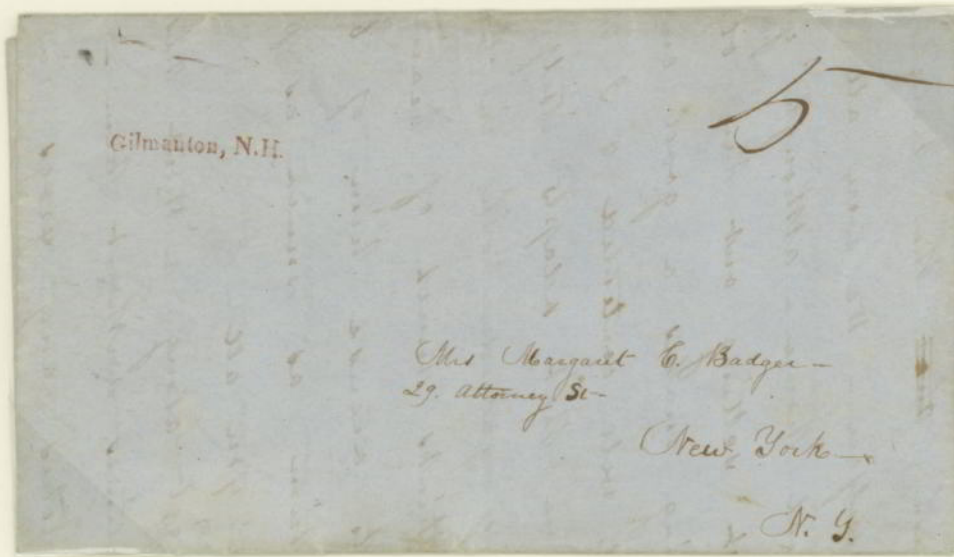 Gilmanton, N.H.
5
Mrs Margaret E. Badger –
29. Attorney St –
New York –
N. Y.